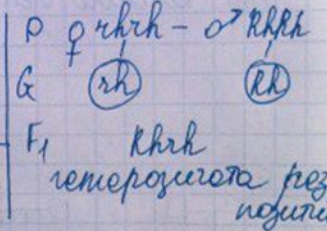 P ♀ rhrh - ♂ RhRh
G rh Rh
F₁ Rhrh
гетерозигота рез
позити